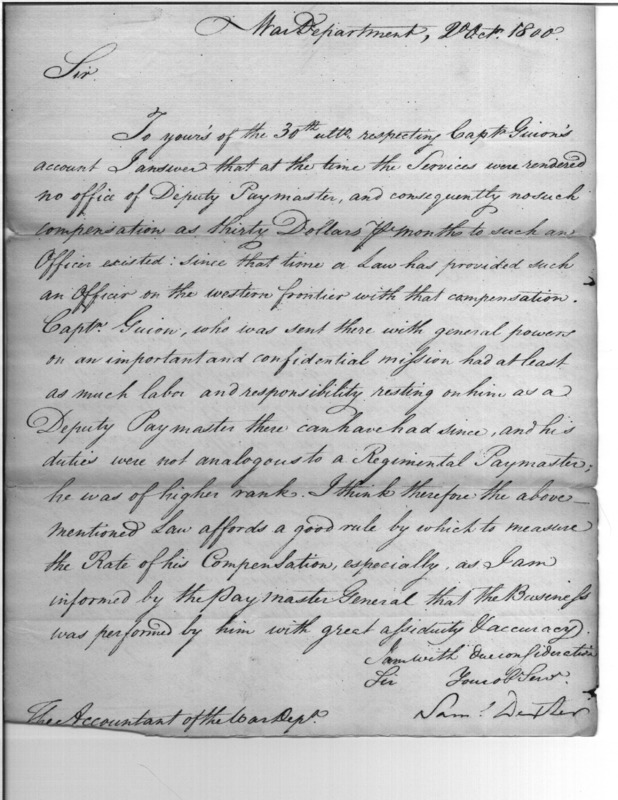 War Department, 2d Octr. 1800.
Sir
To your's of the 30th ulto. respecting Captn. Guion's
account I answer that at the time the Services were rendered
no office of Deputy Paymaster, and consequently no such
compensation as thirty Dollars Pr month to such an
Officer existed: since that time a Law has provided such
an Officer on the western frontier with that compensation.
Captn. Guion, who was sent there with general powers
on an important and confidential mission had at least
as much labor and responsibility resting on him as a
Deputy Paymaster there can have had since, and his
duties were not analogous to a Regimental Paymaster;
he was of higher rank. I think therefore the above
mentioned Law affords a good rule by which to measure
the Rate of his Compensation, especially, as I am
informed by the Paymaster General that the Business
was performed by him with great assiduity & accuracy.
I am with due consideration
Sir Your ob. Servt.
Saml. Dexter
The Accountant of the War Dept.